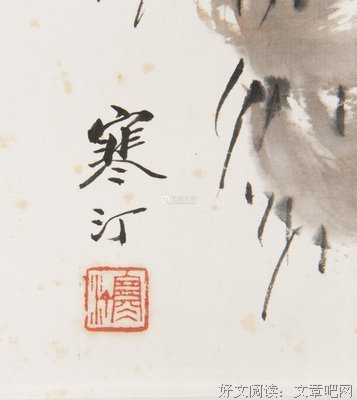 寒
汀
寒汀
好文阅读：文章吧网